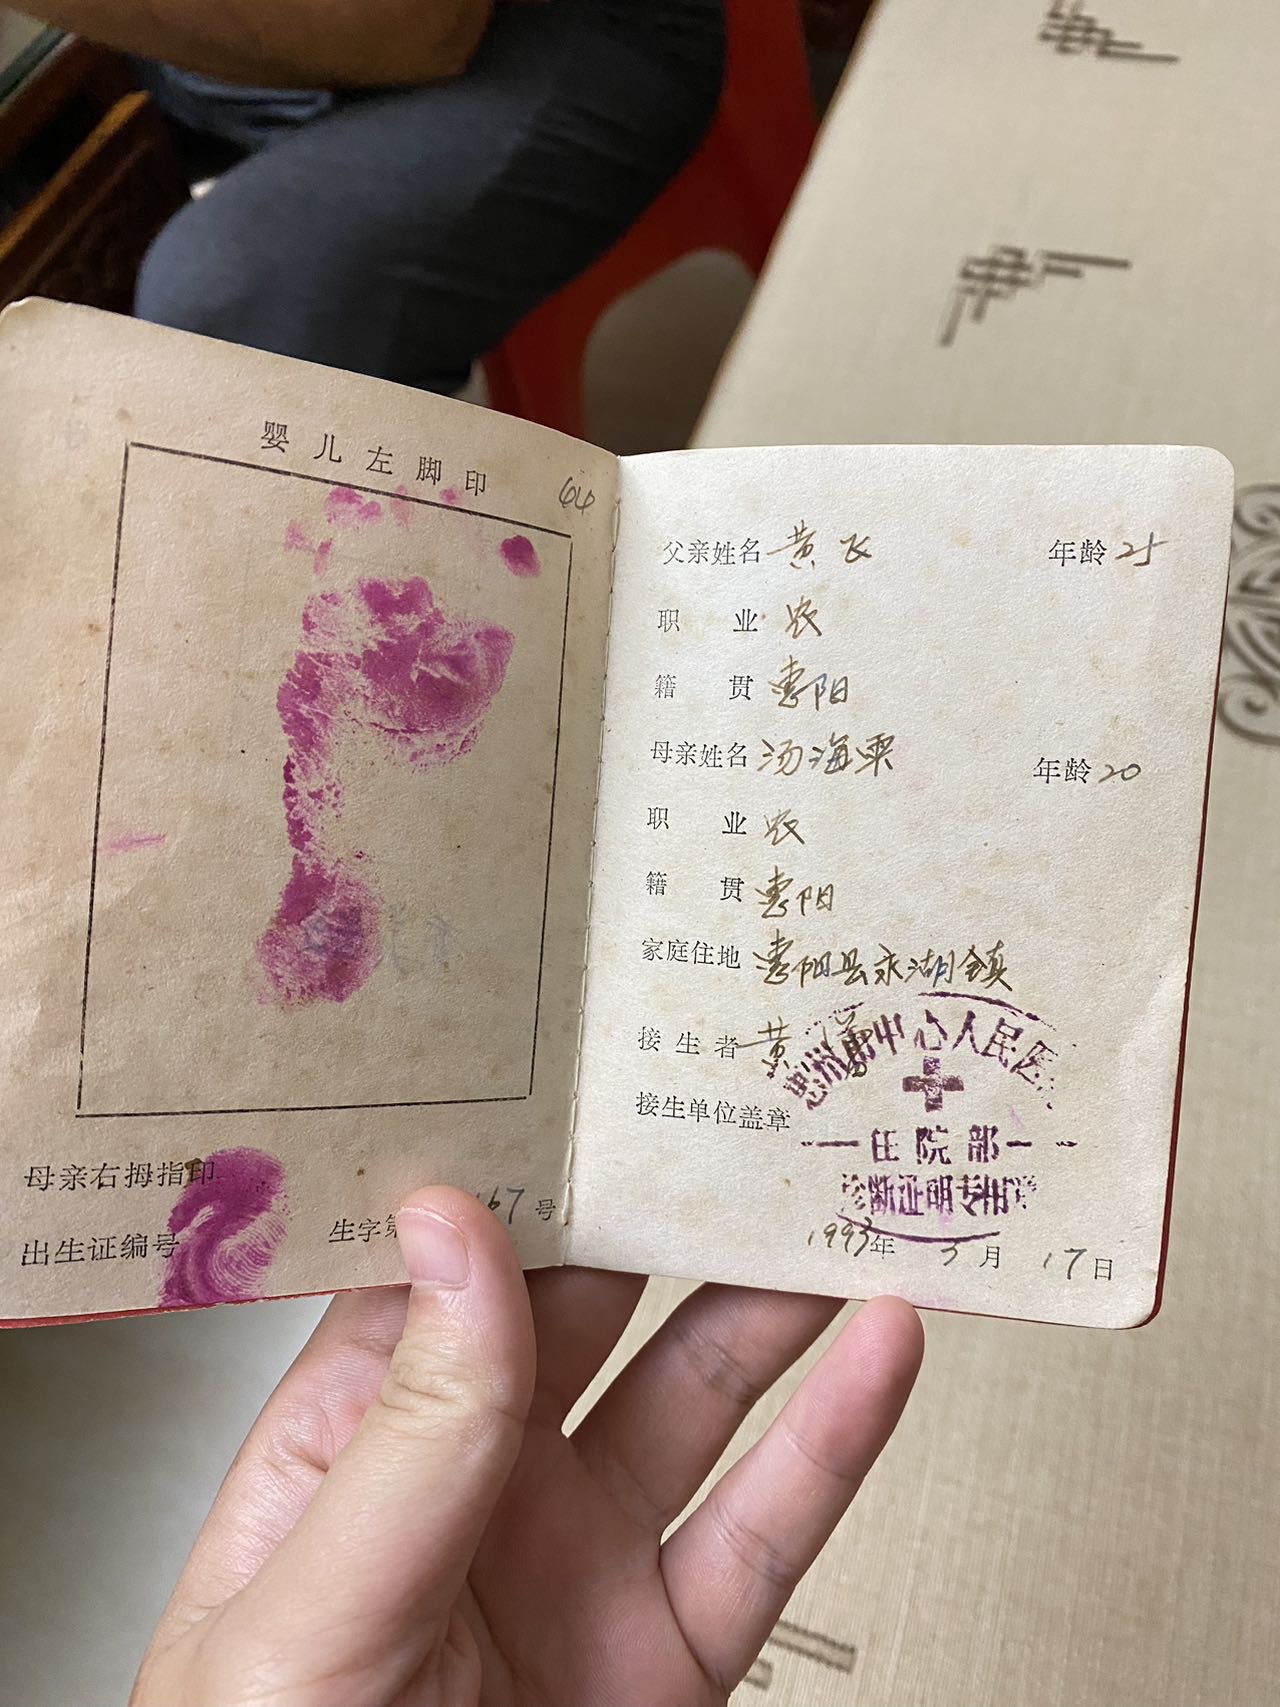 婴儿左脚印
64
母亲右拇指印
出生证编号 生字第 167 号
父亲姓名 黄飞 年龄 25
职业 农
籍贯 惠阳
母亲姓名 汤海 年龄 20
职业 农
籍贯 惠阳
家庭住地 惠阳县永湖镇
接生者 黄
惠州市中心人民医
接生单位盖章
住院部
诊断证明专用章
1993年 3月 17日